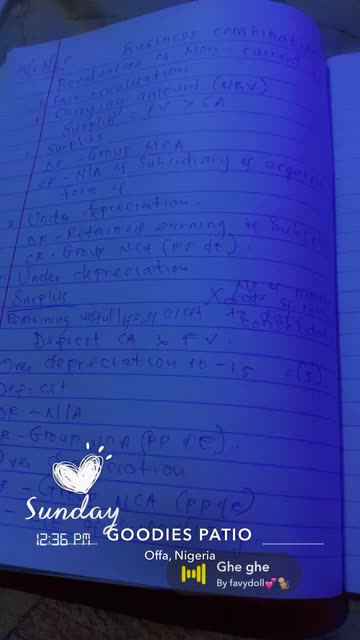 Business combination
Revaluation of Non-current
Fair valuation
Carrying amount (NBV)
Surplus = FV > CA
Surplus
DR - Group NCA
CR - N/A of Subsidiary @ acquisi
form of
2. Under depreciation.
DR - Retained earning of Subsi
CR - Group NCA (PP&E).
Under depreciation
Surplus
Remaining useful life of asset
X
to date
Deficit CA > FV.
Over depreciation 10-15 = (5)
Deficit
DR - N/A
CR - Group NCA (PP&E)
Over depreciation
Group NCA (PP&E)
Sunday
12:36 PM
GOODIES PATIO
Offa, Nigeria
Ghe ghe
By favydoll💕